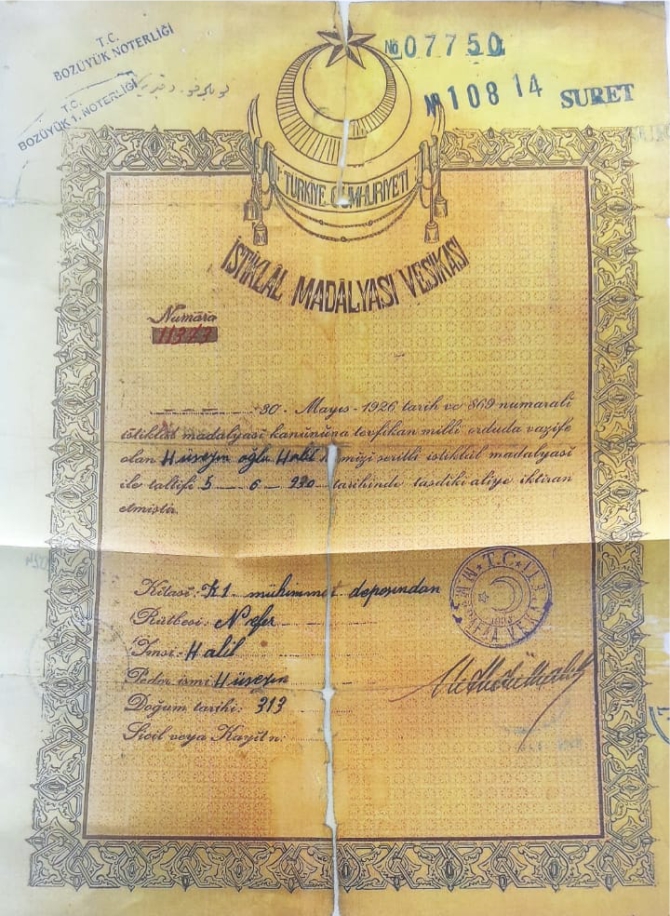 T.C.
BOZÜYÜK NOTERLİĞİ
T.C.
BOZÜYÜK 1. NOTERLİĞİ
№ 07750
№ 108 14 SURET
TÜRKİYE CUMHURİYETİ
İSTİKLÂL MADALYASI VESİKASI
Numara
30 - Mayıs - 1926 tarih ve 869 numaralı
istiklâl madalyası kanununa tevfikan milli orduda vazife
olan Hüseyin oğlu Halil kırmızı şeritli istiklâl madalyası
ile taltifi 5 6 930 tarihinde tasdiki aliye iktiran
etmiştir.
Kıtası: K1 mühimmat deposından
Rütbesi: Nefer
İsmi: Halil
Peder ismi Hüseyin
Doğum tarihi: 313
Sicil veya Kayit n:
T.C.